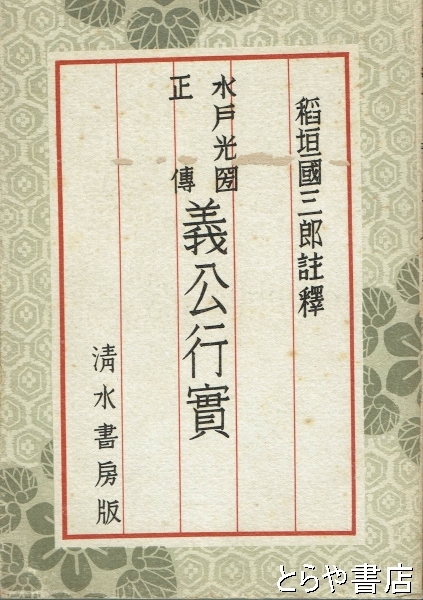 稻垣國三郎註釋
水戶光圀
正傳
義公行實
清水書房版
とらや書店